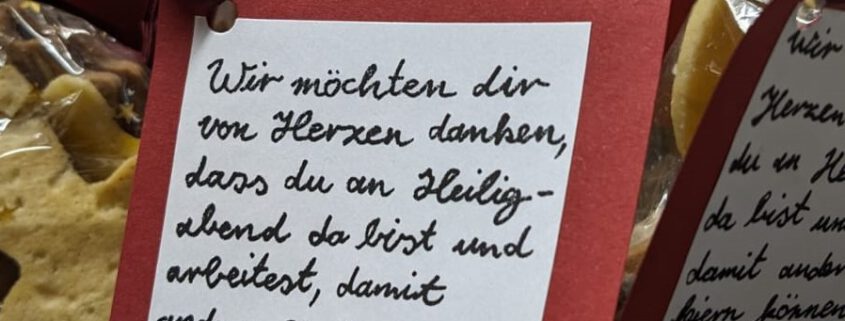 Wir möchten dir
von Herzen danken,
dass du an Heilig-
abend da bist und
arbeitest, damit
Wir
Herzen
du an
da bist
damit
können